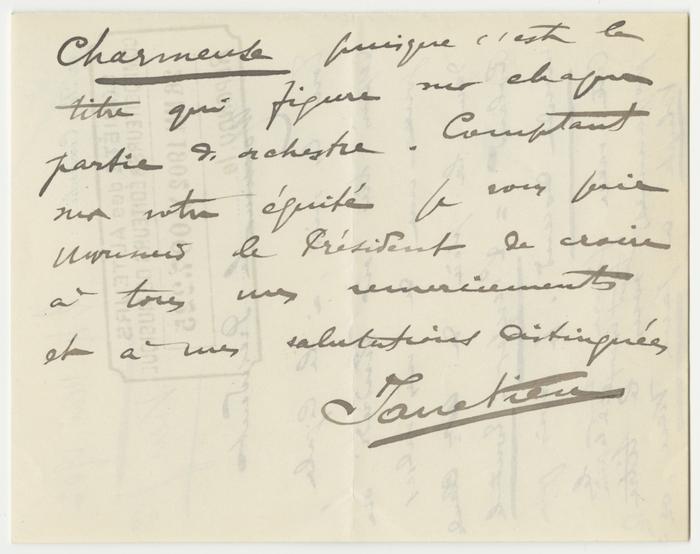 Charmeuse puisque c'est le
titre qui figure sur chaque
partie d'orchestre. Comptant
sur votre équité je vous prie
Monsieur le Président de croire
à tous mes remerciements
et à mes salutations distinguées